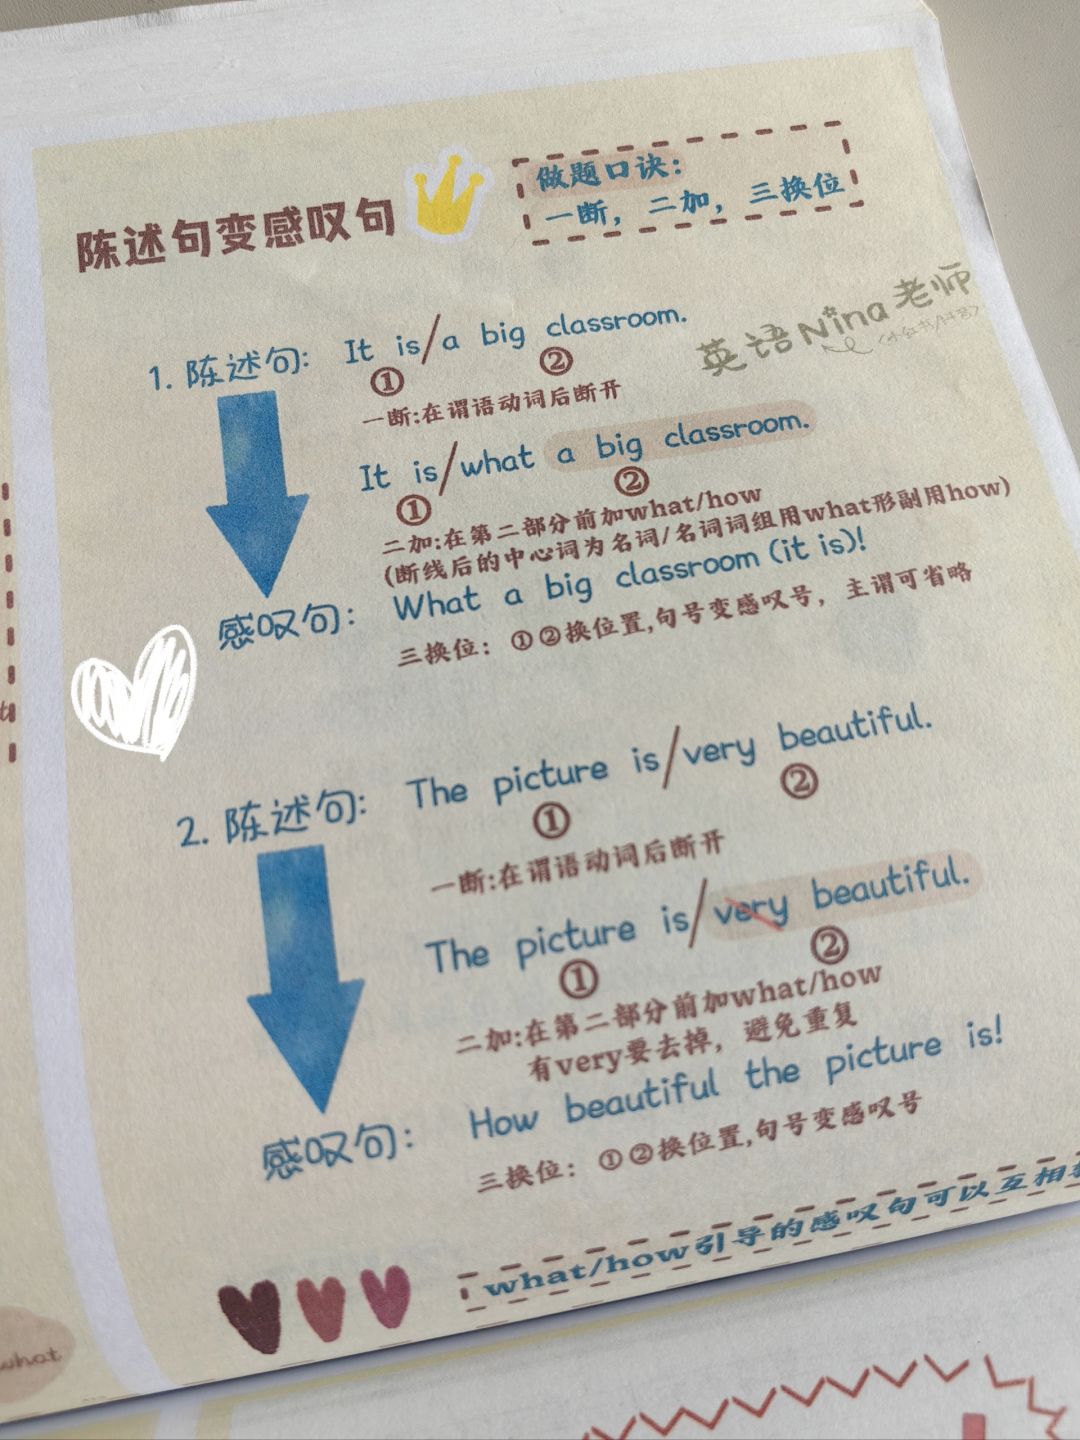 陈述句变感叹句
做题口诀:
一断，二加，三换位
英语Nina老师
1. 陈述句: It is/a big classroom.
① ②
一断:在谓语动词后断开
It is/what a big classroom.
① ②
二加:在第二部分前加what/how
(断线后的中心词为名词/名词词组用what形副用how)
感叹句: What a big classroom (it is)!
三换位: ①②换位置,句号变感叹号，主谓可省略
2. 陈述句: The picture is/very beautiful.
① ②
一断:在谓语动词后断开
The picture is/very beautiful.
① ②
二加:在第二部分前加what/how
有very要去掉，避免重复
感叹句: How beautiful the picture is!
三换位: ①②换位置,句号变感叹号
what/how引导的感叹句可以互相
what